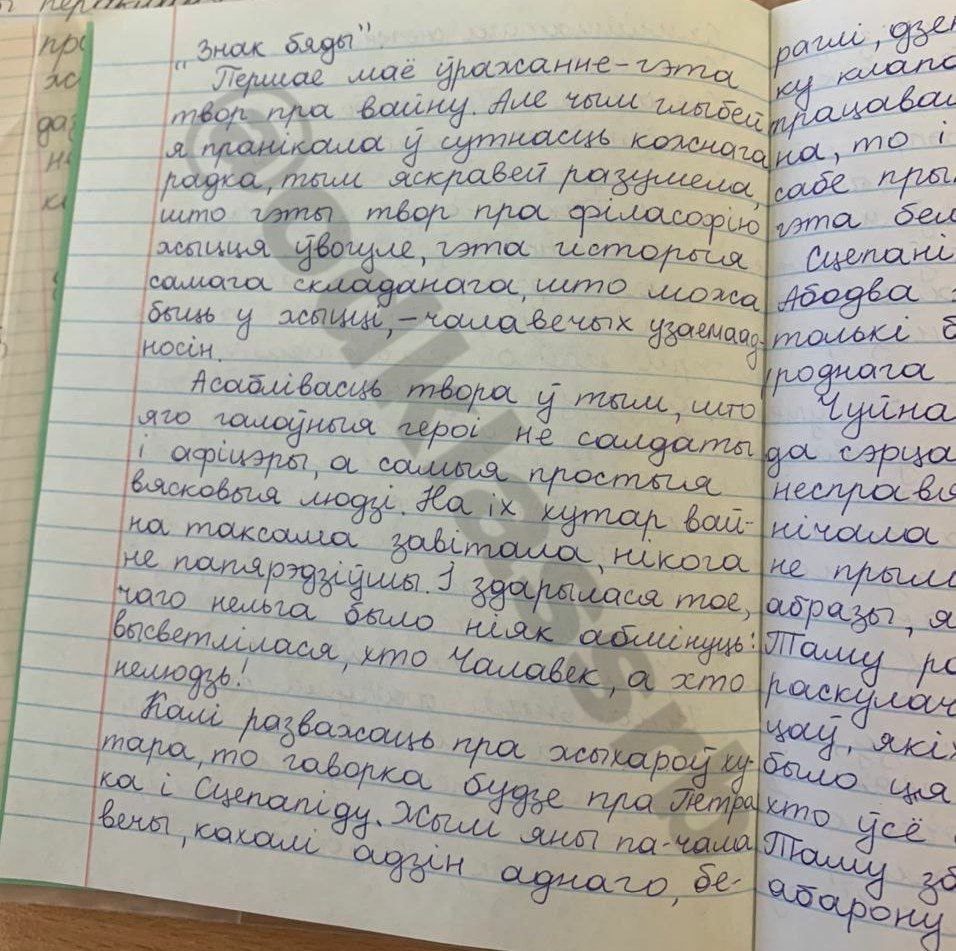 „Знак бяды"
Першае маё ўражанне – гэта
твор пра вайну. Але чым глыбей
я пранікала ў сутнасць кожнага
радка, тым яскравей разумела,
што гэты твор пра філасофію
жыцця ўвогуле, гэта гісторыя
самага складанага, што можа
быць у жыцці, – чалавечых узаемаад-
носін.
Асаблівасць твора ў тым, што
яго галоўныя героі не салдаты
і афіцэры, а самыя простыя
вясковыя людзі. На іх хутар вай-
на таксама завітала, нікога
не папярэдзіўшы. І здарылася тое,
чаго нельга было ніяк абмінуць:
высветлілася, хто Чалавек, а хто
нелюдзь!
Калі разважаць пра жыхароў ху-
тара, то гаворка будзе пра Петра
ка і Сцепаніду. Жылі яны па-чала
вечы, кахалі адзін аднаго, бе-
раглі, дзе
ку клапа
працавал
на, то і
сабе пры
гэта бел
Сцепані
Абодва
толькі б
роднага
Чуйна
да сэрца
несправя
нічала
не прым
абразы, я
Таму ра
раскулач
цаў, які
было ця
хто ўсё
Таму зб
абарону
@adklassrb